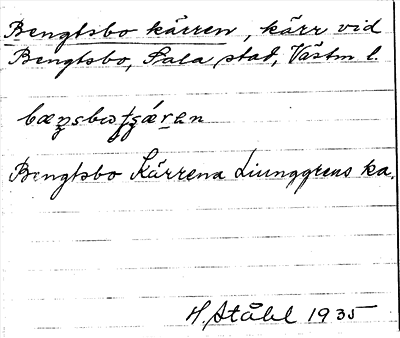 Bengtsbo kärren, kärr vid
Bengtsbo, Sala stad, Västm l.
Bengtsbo Kärrena Liunggrens ka.
H. Ståhl 1935